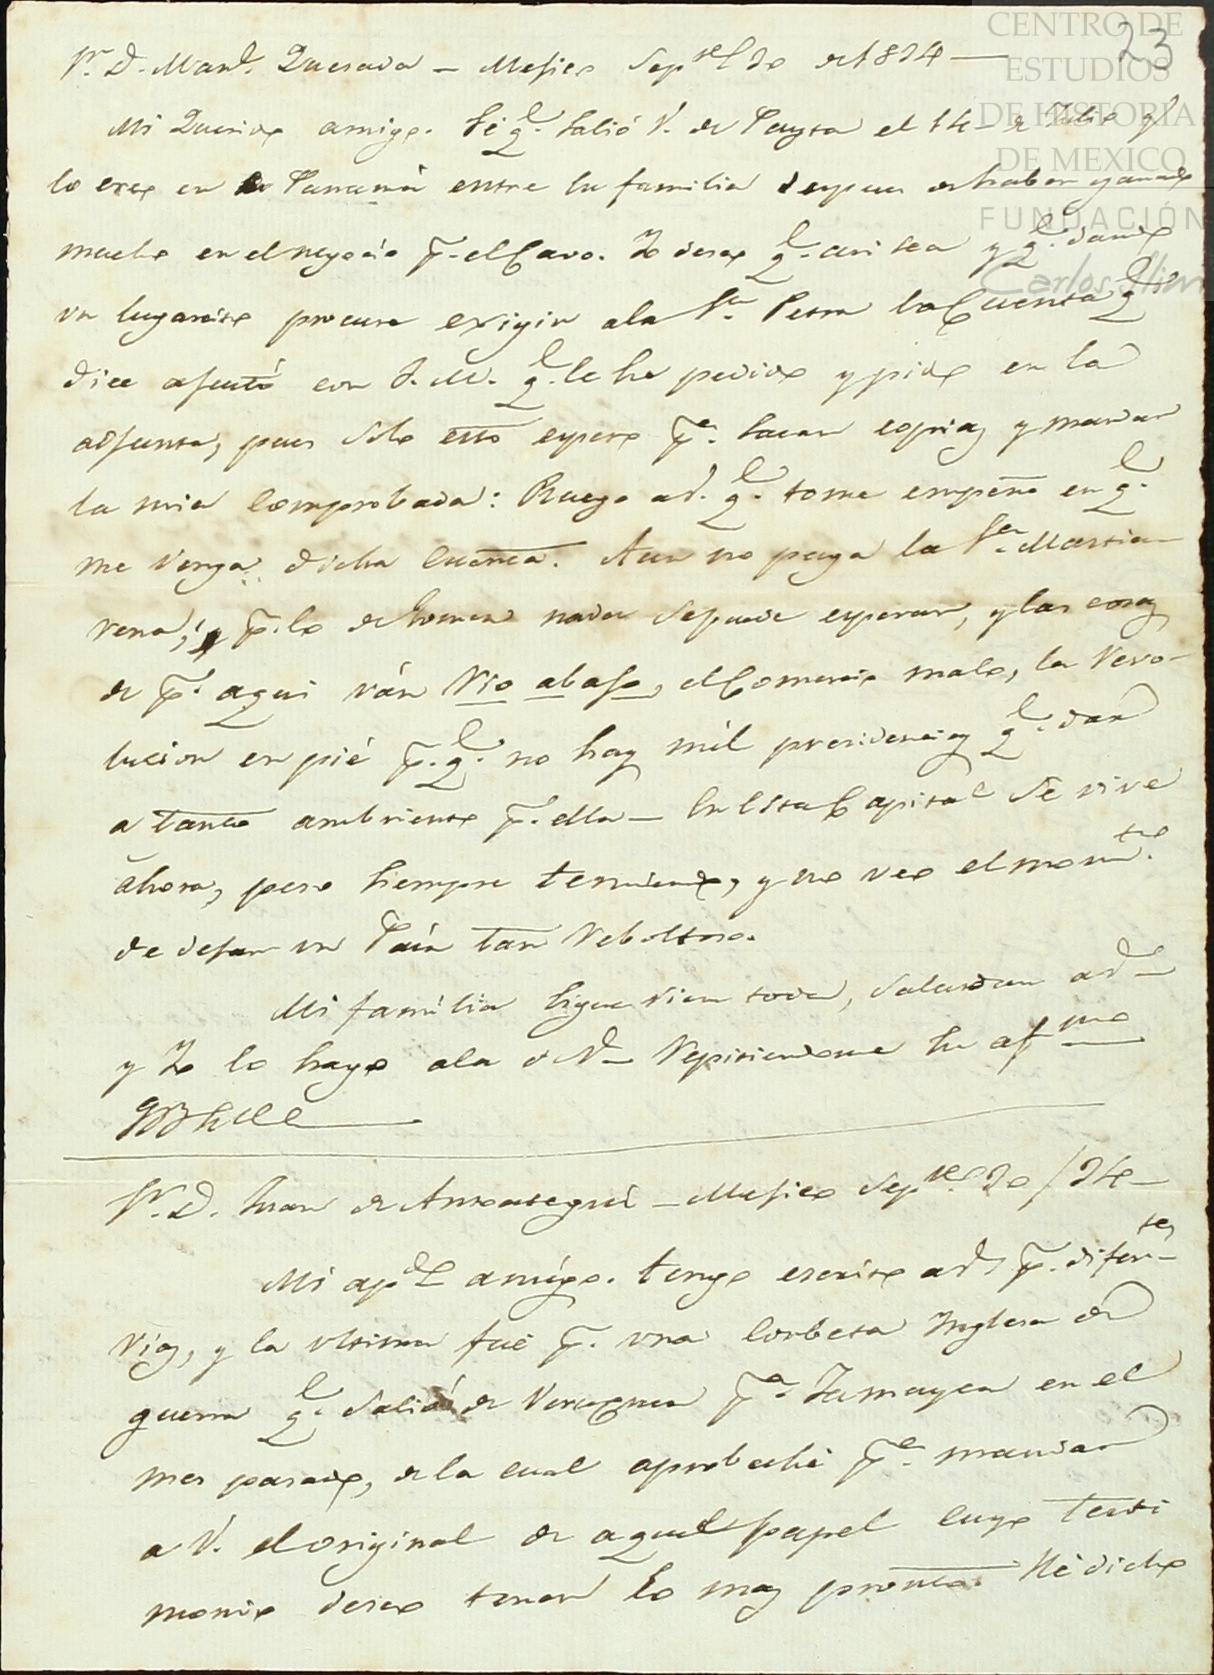 CENTRO DE
ESTUDIOS
DE HISTORIA
DE MEXICO
FUNDACIÓN
Carlos Slim
23
Sr. D. Man.l Quesada — Mejico Sep.re 20 de 1824 —
Mi Querido amigo. Sé q.e salió V. de Payta el 14 de Julio y
lo creo en Panamá entre su familia despues de haber ganado
mucho en el negocio p.r el Cavo. Yo deseo q.e asi sea y q.e dando
un lugarcito procure exigir a la S.ra Petra la Cuenta q.e
dice ajustó con J. M. q.e le he pedido y pido en la
adjunta, pues solo esto espero p.a sacar copias y mandar
la mia comprobada: Ruego a V. q.e tome empeño en q.e
me venga dicha cuenta. Aun no paga la S.ra Martia-
rena, y p.r lo de nada se puede esperar, y las cosas
de p.r aqui ván rio abajo, el Comercio malo, la revo-
lucion en pié p.r q.e no hay mil presidencias q.e dar
a tanto ambriento p.r ella — En esta Capital se vive
ahora, pero siempre temiendo, y no veo el mom.to
de dejar un Pais tan reboltoso.
Mi familia sigue vien toda, saludan a V.
y Yo lo hago a la de V. repitiendome su af.mo
Sr. D. Juan de Amategui — Mejico Sep.re 20/24 —
Mi ap.do amigo. tengo escrito a V. p.r diferen.tes
vias, y la ultima fué p.r una Corbeta Inglesa de
guerra q.e salió de Veracruz p.a Jamayca en el
mes pasado, de la cual aprobeché p.a mandar
a V. el original de aquel papel cuyo testi
monio deseo tener lo mas pronto. Hé dicho